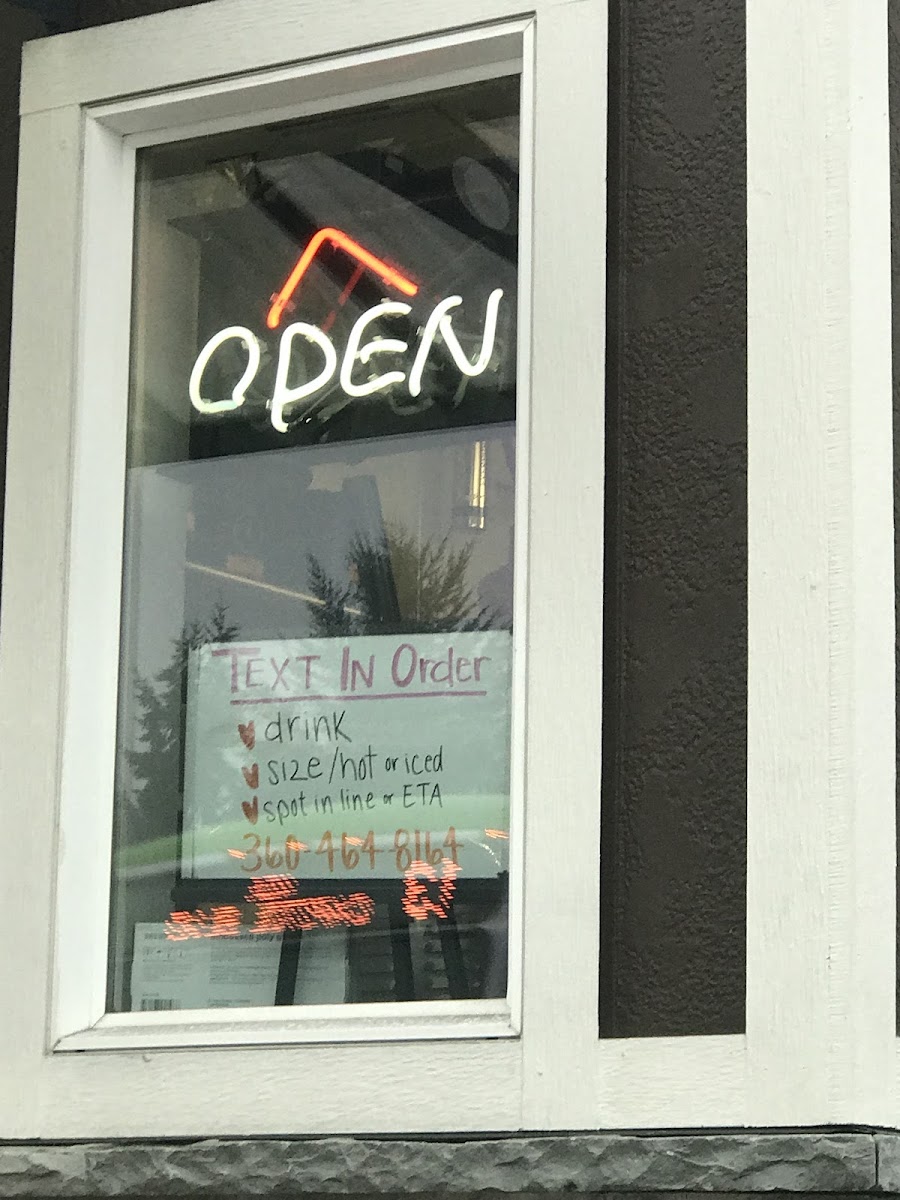 OPEN
TEXT IN Order
drink
size/hot or iced
spot in line or ETA
360-464-8164